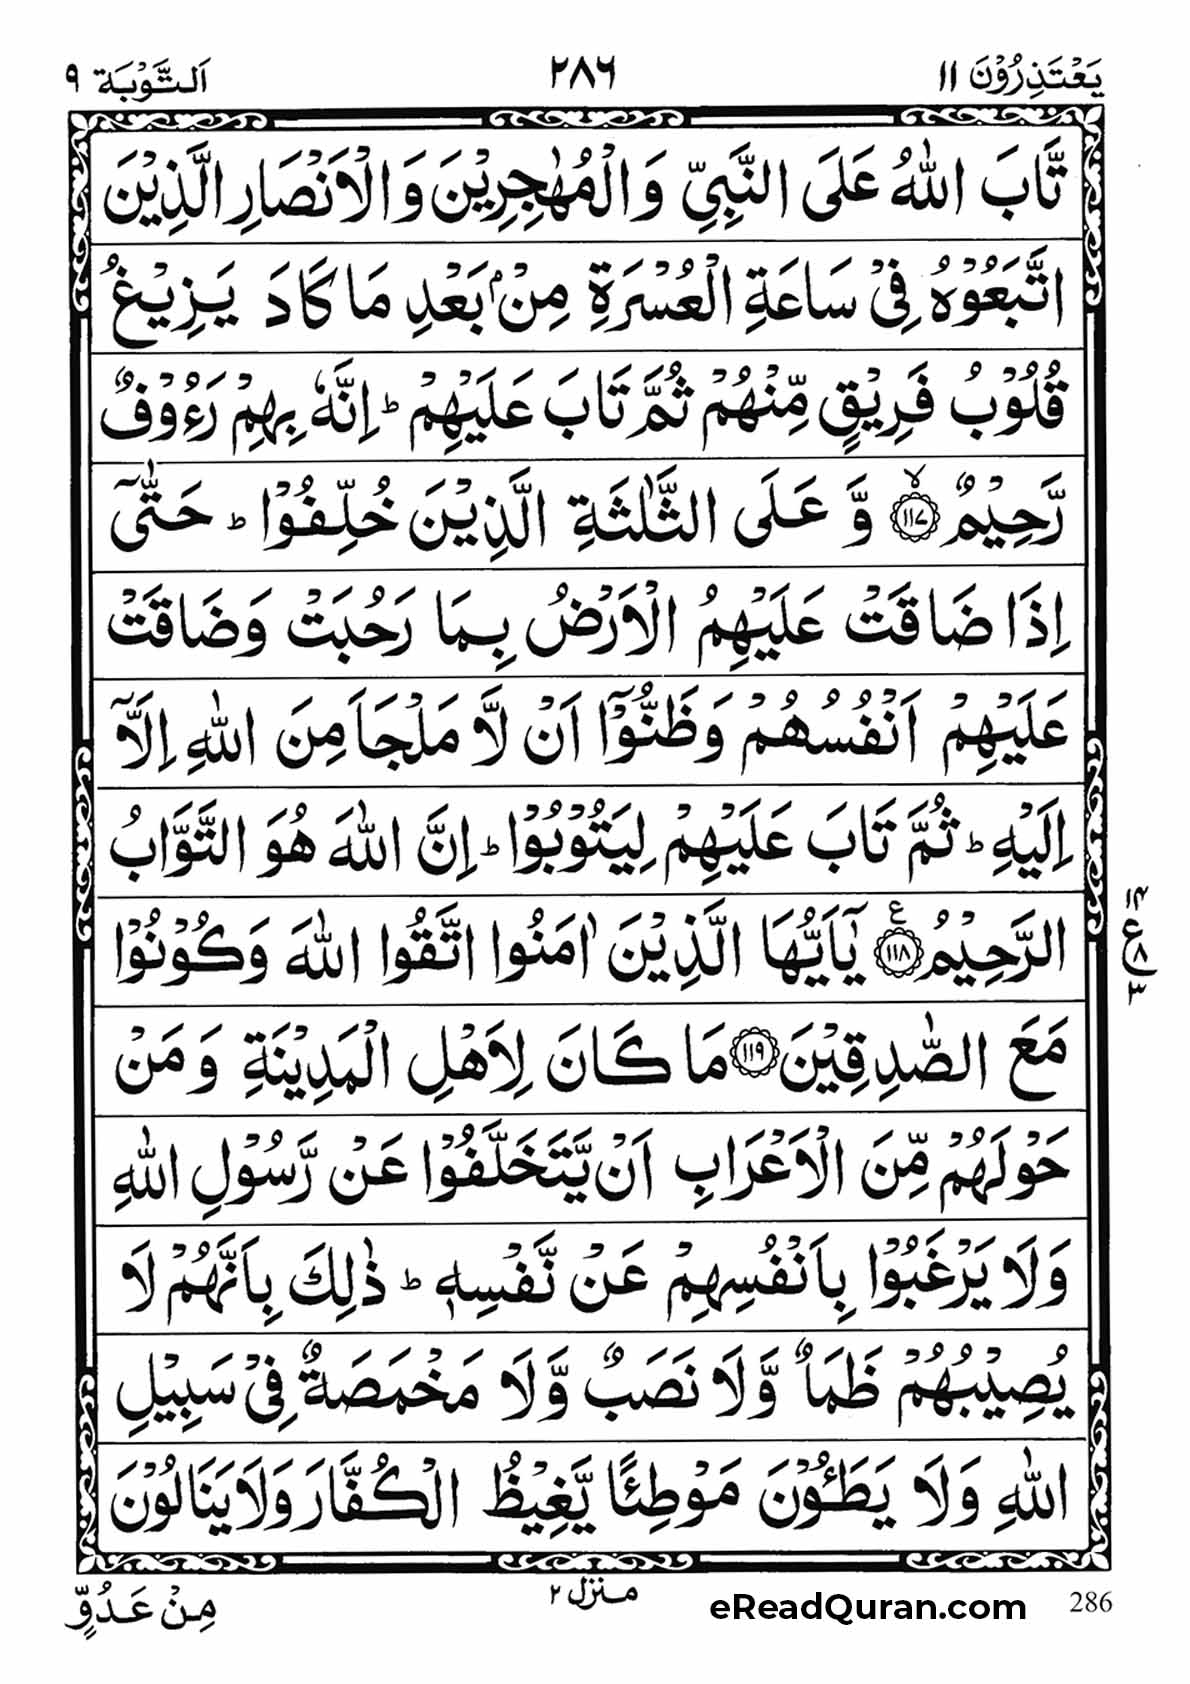 يَعْتَذِرُوْنَ ١١
٢٨٦
اَلتَّوْبَة ٩
تَّابَ اللّٰهُ عَلَى النَّبِيِّ وَالْمُهٰجِرِيْنَ وَالْاَنْصَارِ الَّذِيْنَ
اتَّبَعُوْهُ فِيْ سَاعَةِ الْعُسْرَةِ مِنْۢ بَعْدِ مَا كَادَ يَزِيْغُ
قُلُوْبُ فَرِيْقٍ مِّنْهُمْ ثُمَّ تَابَ عَلَيْهِمْ ؕ اِنَّهٗ بِهِمْ رَءُوْفٌ
رَّحِيْمٌ ۙ‏﴿۱۱۷﴾ وَّ عَلَى الثَّلٰثَةِ الَّذِيْنَ خُلِّفُوْا ؕ حَتّٰۤى
اِذَا ضَاقَتْ عَلَيْهِمُ الْاَرْضُ بِمَا رَحُبَتْ وَضَاقَتْ
عَلَيْهِمْ اَنْفُسُهُمْ وَظَنُّوْۤا اَنْ لَّا مَلْجَاَ مِنَ اللّٰهِ اِلَّاۤ
اِلَيْهِ ؕ ثُمَّ تَابَ عَلَيْهِمْ لِيَتُوْبُوْا ؕ اِنَّ اللّٰهَ هُوَ التَّوَّابُ
الرَّحِيْمُ ﴿۱۱۸﴾ ع يٰۤاَيُّهَا الَّذِيْنَ اٰمَنُوا اتَّقُوا اللّٰهَ وَكُوْنُوْا
١٤ ع ٨ ٣
مَعَ الصّٰدِقِيْنَ ﴿۱۱۹﴾ مَا كَانَ لِاَهْلِ الْمَدِيْنَةِ وَمَنْ
حَوْلَهُمْ مِّنَ الْاَعْرَابِ اَنْ يَّتَخَلَّفُوْا عَنْ رَّسُوْلِ اللّٰهِ
وَلَا يَرْغَبُوْا بِاَنْفُسِهِمْ عَنْ نَّفْسِهٖ ؕ ذٰلِكَ بِاَنَّهُمْ لَا
يُصِيْبُهُمْ ظَمَاٌ وَّلَا نَصَبٌ وَّلَا مَخْمَصَةٌ فِيْ سَبِيْلِ
اللّٰهِ وَلَا يَطَـُٔوْنَ مَوْطِئًا يَّغِيْظُ الْكُفَّارَ وَلَا يَنَالُوْنَ
مِنْ عَدُوٍّ
منزل ٢
eReadQuran.com
286